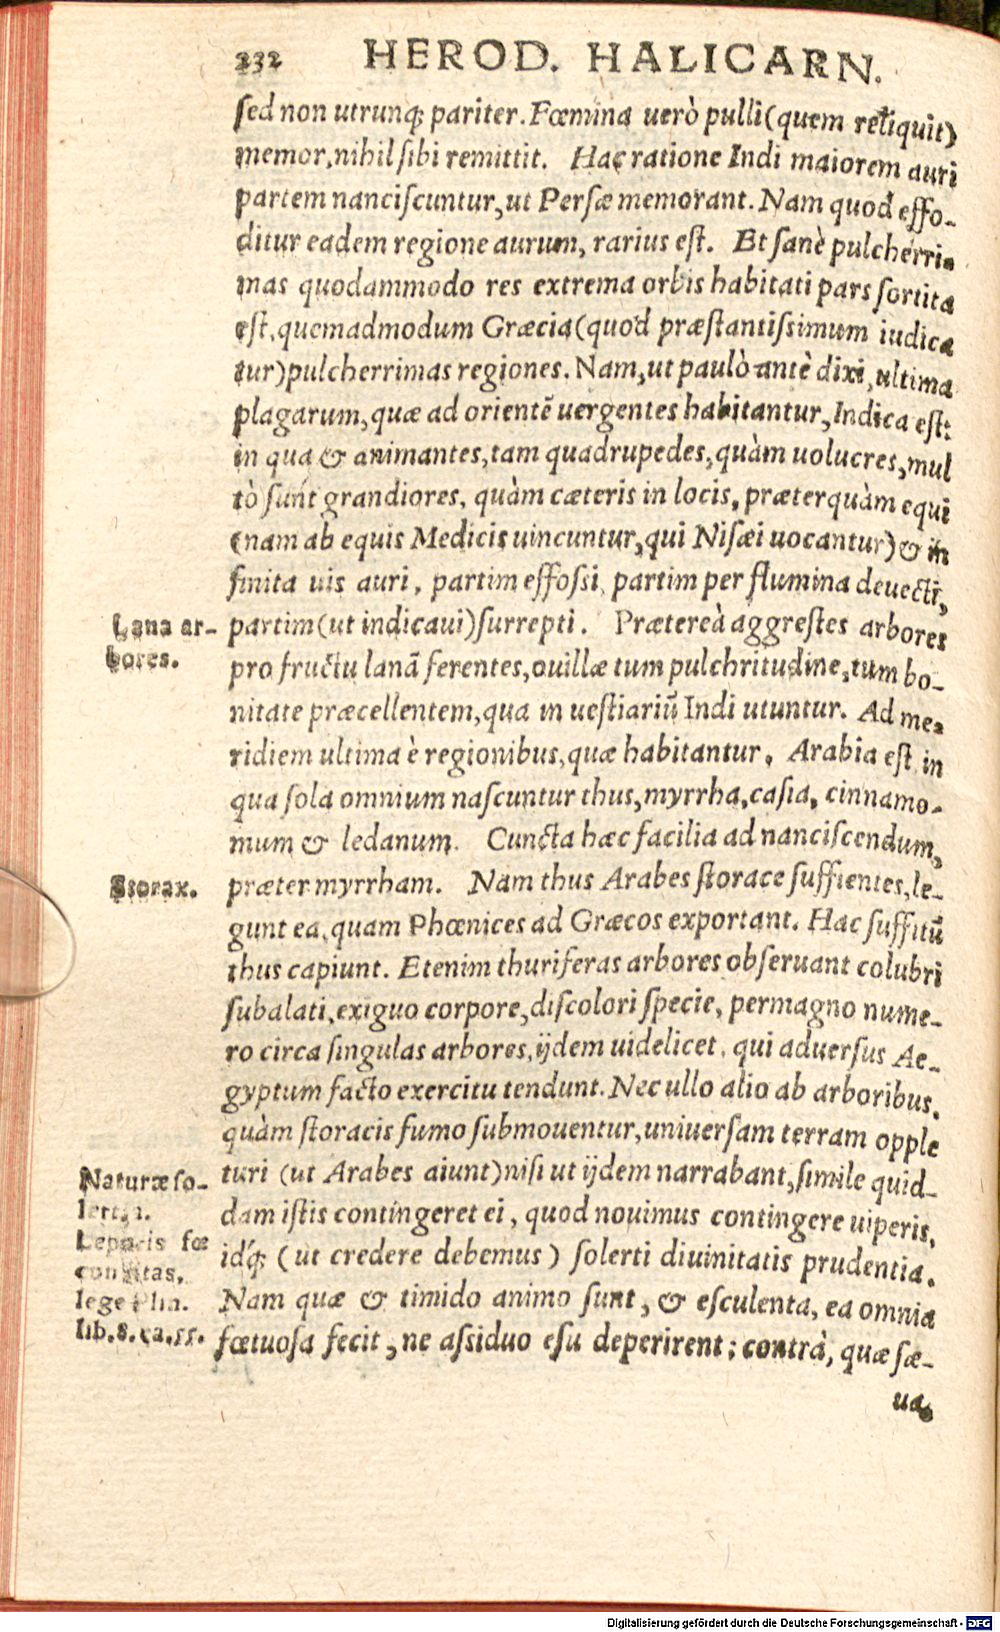 232 HEROD. HALICARN.
ſed non utrunq; pariter. Fœmina uerò pulli (quem reliquit)
memor, nihil ſibi remittit. Hac ratione Indi maiorem auri
partem nanciſcuntur, ut Perſæ memorant. Nam quod effo-
ditur eadem regione aurum, rarius eſt. Et ſanè pulcherri-
mas quodammodo res extrema orbis habitati pars ſortita
eſt, quemadmodum Græcia (quod præſtantiſsimum iudica
tur) pulcherrimas regiones. Nam, ut paulò antè dixi, ultima
plagarum, quæ ad orientē uergentes habitantur, Indica eſt:
in qua & animantes, tam quadrupedes, quàm uolucres, mul
tò ſunt grandiores, quàm cæteris in locis, præterquàm equi
(nam ab equis Medicis uincuntur, qui Niſæi uocantur) & in
finita uis auri, partim effoſsi, partim per flumina deuecti,
Lana ar-
bores.
partim (ut indicaui) ſurrepti. Prætereà aggreſtes arbores
pro fructu lanā ferentes, ouillæ tum pulchritudine, tum bo-
nitate præcellentem, qua in ueſtiariū Indi utuntur. Ad me-
ridiem ultima è regionibus, quæ habitantur, Arabia eſt in
qua ſola omnium naſcuntur thus, myrrha, caſia, cinnamo-
mum & ledanum. Cuncta hæc facilia ad nanciſcendum,
Storax.
præter myrrham. Nam thus Arabes ſtorace ſuffientes, le-
gunt ea, quam Phœnices ad Græcos exportant. Hac ſuffitū
thus capiunt. Etenim thuriferas arbores obſeruant colubri
ſubalati, exiguo corpore, diſcolori ſpecie, permagno nume-
ro circa ſingulas arbores, ijdem uidelicet, qui aduerſus Ae-
gyptum facto exercitu tendunt. Nec ullo alio ab arboribus,
quàm ſtoracis fumo ſubmouentur, uniuerſam terram opple
Naturæ ſo-
lertia.
Leporis fœ
cunditas,
lege Plin.
lib. 8. ca. 55.
turi (ut Arabes aiunt) niſi ut ijdem narrabant, ſimile quid-
dam iſtis contingeret ei, quod nouimus contingere uiperis,
idq; (ut credere debemus) ſolerti diuinitatis prudentia.
Nam quæ & timido animo ſunt, & eſculenta, ea omnia
fœtuoſa fecit, ne aſsiduo eſu deperirent; contrà, quæ ſæ-
ua,
Digitalisierung gefördert durch die Deutsche Forschungsgemeinschaft - DFG